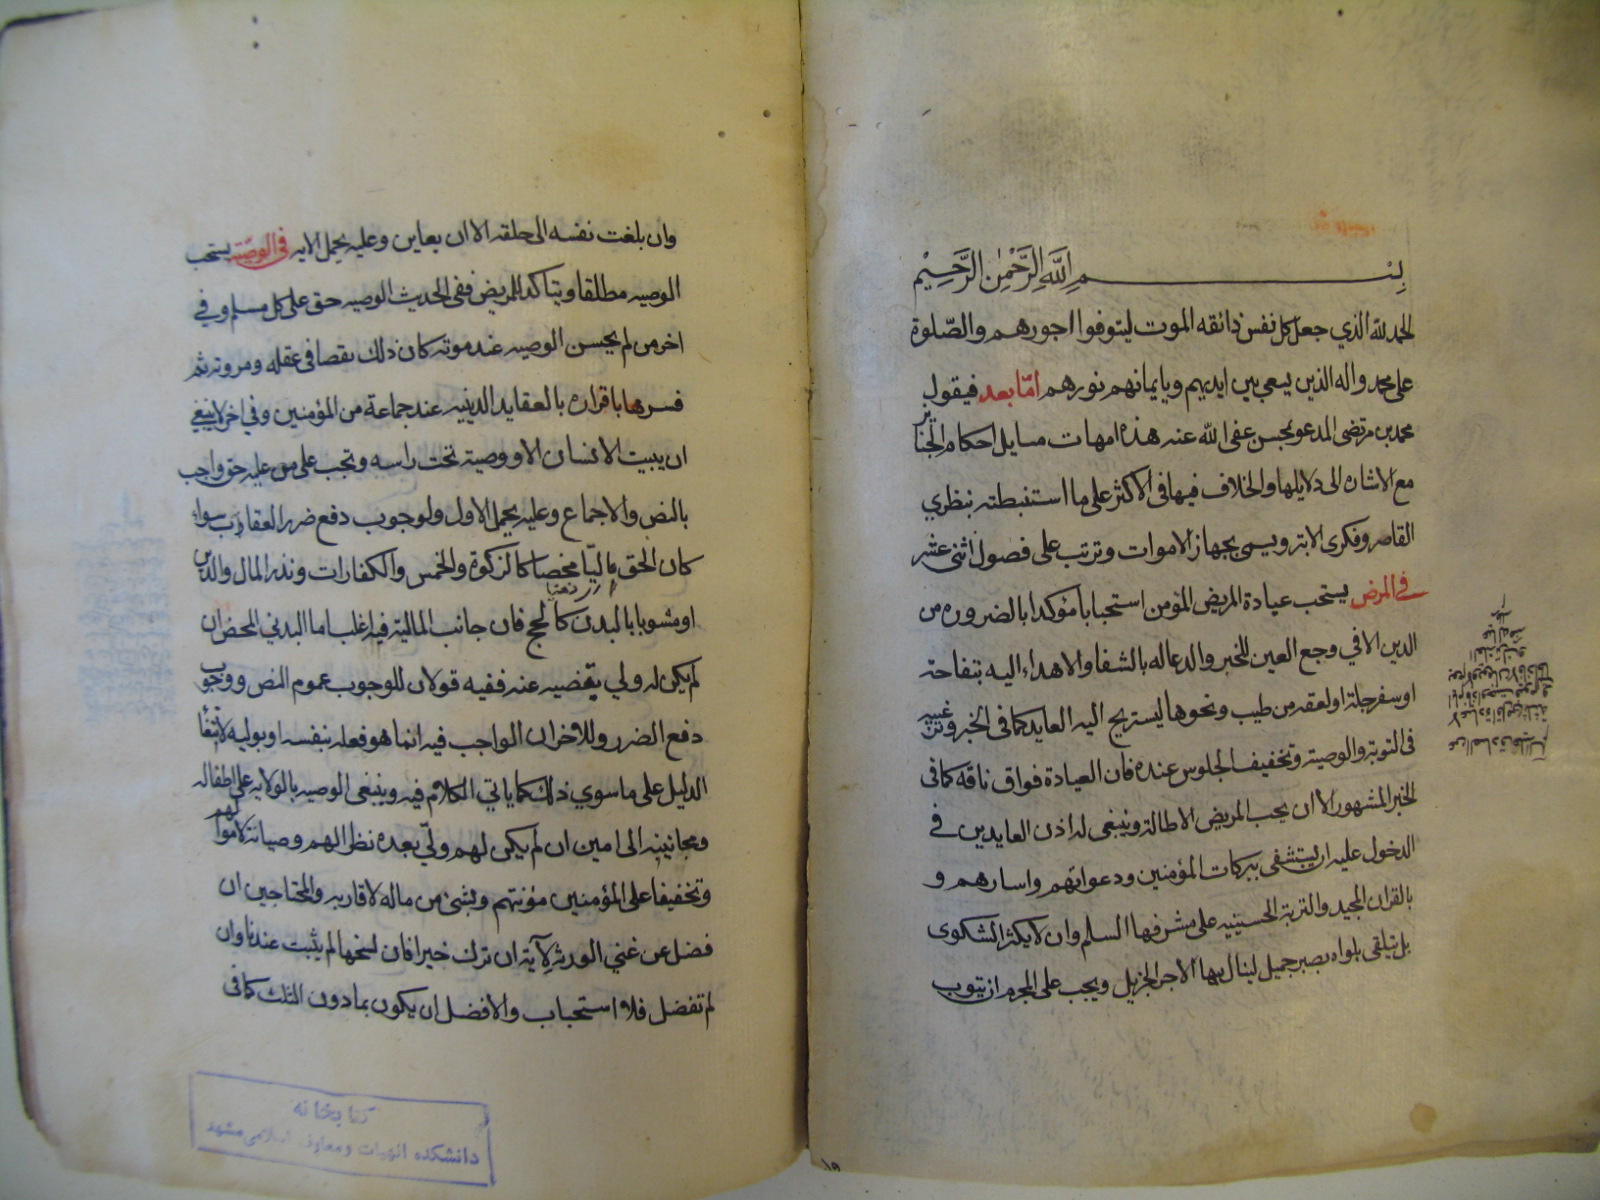 بسم الله الرحمن الرحيم
الحمد لله الذي جعل كل نفس ذائقه الموت ليتوفوا اجورهم والصّلوة
على محمد واله الذين يسعى بين ايديهم وبايمانهم نورهم امّا بعد فيقول
محمد بن مرتضى المدعو بمحسن عفى الله عنه هذه امهات مسايل احكام الجنائز
مع الاشاره الى دلايلها والخلاف فيها في الاكثر على ما استنبطته بنظري
القاصر وفكرى الابتر ويسمى بجهاز الاموات وترتب على فصول اثنى عشر
في المرض يستحب عيادة المريض المؤمن استحبابا مؤكدا بالضروره من
الدين الا في وجع العين للخبر والدعا له بالشفا والاهداء اليه بتفاحة
او سفرجلة او لعقه من طيب ونحوها ليستريح اليه العايد كما في الخبر وترغيبه
في التوبة والوصية وتخفيف الجلوس عنده فان العيادة فواق ناقه كما في
الخبر المشهور الا ان يحب المريض الاطالة وينبغى له اذن العايدين في
الدخول عليه ان يستشفى ببركات المؤمنين ودعواتهم واسارهم و
بالقران المجيد والتربة الحسينيه على مشرفها السلم وان لا يكثر الشكوى
بل يتلقى بلواه بصبر جميل لينال بها الاجر الجزيل ويجب على المجرم ان يتوب
وان بلغت نفسه الى حلقه الا ان يعاين وعليه يحمل الايه في الوصيّة يستحب
الوصيه مطلقا ويتاكد للمريض ففى الحديث الوصيه حق على كل مسلم وفي
اخر من لم يحسن الوصيه عند موته كان ذلك نقصا في عقله ومروته ثم
فسرها باقراره بالعقايد الدينيه عند جماعة من المؤمنين وفي اخر لا ينبغي
ان يبيت الانسان الا ووصية تحت راسه وتجب على من عليه حق واجب
بالنص والاجماع وعليه يحمل الاول ولوجوب دفع ضرر العقاب سواء
كان الحق ماليّا محضا كالزكوة والخمس والكفارات ونذر المال والدين
او مشوبا بالبدن كالحج فان جانب المالية فيه اغلب اما البدني المحض ان
لم يكن له ولي يقضيه عنه ففيه قولان للوجوب عموم النص ووجوب
دفع الضرر وللاخر ان الواجب فيه انما هو فعله بنفسه او بوليه لانتفاء
الدليل على ما سوي ذلك كما ياتي الكلام فيه وينبغى الوصيه بالولايه على اطفاله
ومجانينه الى امين ان لم يكن لهم وليّ بعده نظرا لهم وصيانة لاموالهم
وتخفيفا على المؤمنين مؤنتهم وبشئ من ماله لاقاربه والمحتاجين ان
فضل عن غني الورثه لآية ان ترك خيرا فان نسخها لم يثبت عندنا وان
لم تفضل فلا استحباب والافضل ان يكون بمادون الثلث كما في
كتابخانه
دانشكده الهيات ومعارف اسلامى مشهد